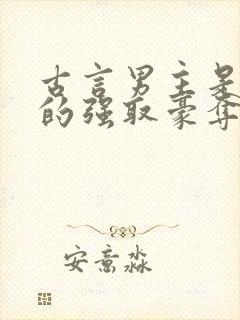 古言男主是
的强取豪夺
安意淼